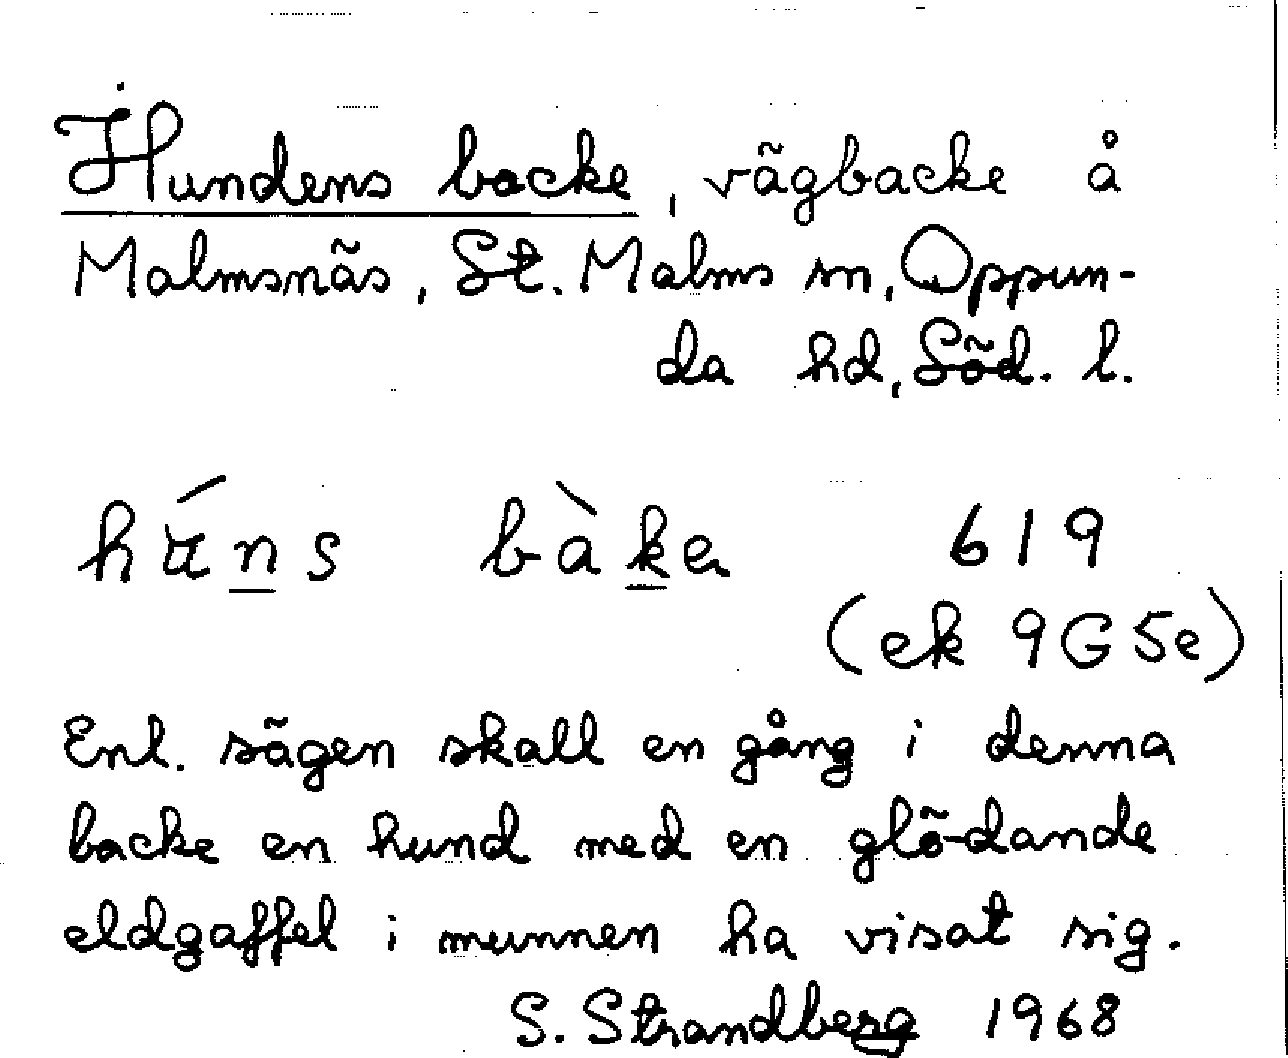 Hundens backe, vägbacke å
Malmsnäs, St. Malms sn, Oppun-
da hd, Söd. l.
hú̵n̲s bàk̲e 619
(ek 9G5e)
Enl. sägen skall en gång i denna
backe en hund med en glödande
eldgaffel i munnen ha visat sig.
S. Strandberg 1968